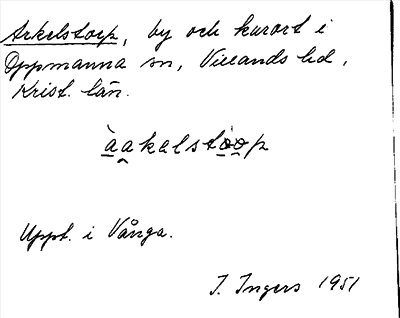 Arkelstorp, by och kurort i
Oppmanna sn, Villands hd,
Krist. län.
àakelstòop
Uppt. i Vånga.
I. Ingers 1951